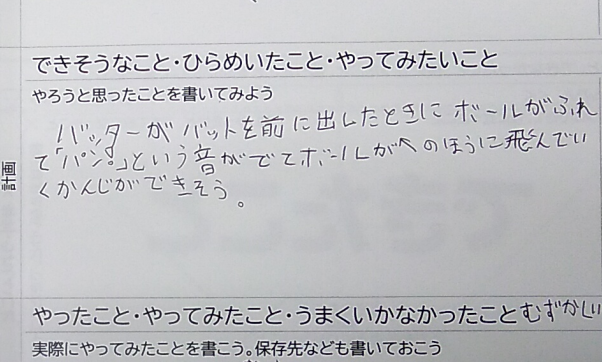 できそうなこと・ひらめいたこと・やってみたいこと
やろうと思ったことを書いてみよう
バッターがバットを前に出したときにボールがふれ
て「パン。」という音がでてボールがへのほうに飛んでい
くかんじができそう。
計画
やったこと・やってみたこと・うまくいかなかったこと むずかしい
実際にやってみたことを書こう。保存先なども書いておこう